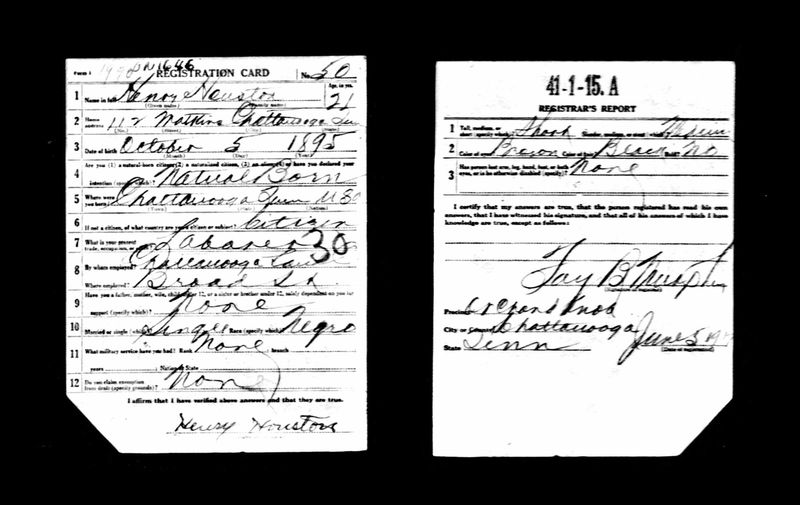 Form 1 REGISTRATION CARD No. 50
1 Name in full Henry Houston Age, in yrs. 21
(Given name) (Family name)
2 Home address 112 Watkins Chattanooga Tenn
(No.) (Street) (City) (State)
3 Date of birth October 5 1895
(Month) (Day) (Year)
Are you (1) a natural-born citizen, (2) a naturalized citizen, (3) an alien, (4) or have you declared your
4 intention (specify which)? Natural Born
5 Where were you born? Chattanooga Tenn
(Town) (State) (Nation)
6 If not a citizen, of what country are you a citizen or subject? Citizen
7 What is your present trade, occupation, or office? Laborer 30
8 By whom employed? Chattanooga
Where employed? Broad St.
9 Have you a father, mother, wife, child under 12, or a sister or brother under 12, solely dependent on you for
support (specify which)? None
10 Married or single (which)? Single Race (specify which)? Negro
11 What military service have you had? Rank None branch
years Nation or State
12 Do you claim exemption from draft (specify grounds)? None
I affirm that I have verified above answers and that they are true.
Henry Houston
41-1-15. A
REGISTRAR'S REPORT
1 Tall, medium, or short (specify which)? Short Slender, medium, or stout (which)? Medium
2 Color of eyes? Brown Color of hair? Black Bald? No
3 Has person lost arm, leg, hand, foot, or both eyes, or is he otherwise disabled (specify)? None
I certify that my answers are true, that the person registered has read his own
answers, that I have witnessed his signature, and that all of his answers of which I have
knowledge are true, except as follows:
Fay B
(Signature of registrar)
Precinct Orchard Knob
City or County Chattanooga
State Tenn June 5 1917
(Date of registration)